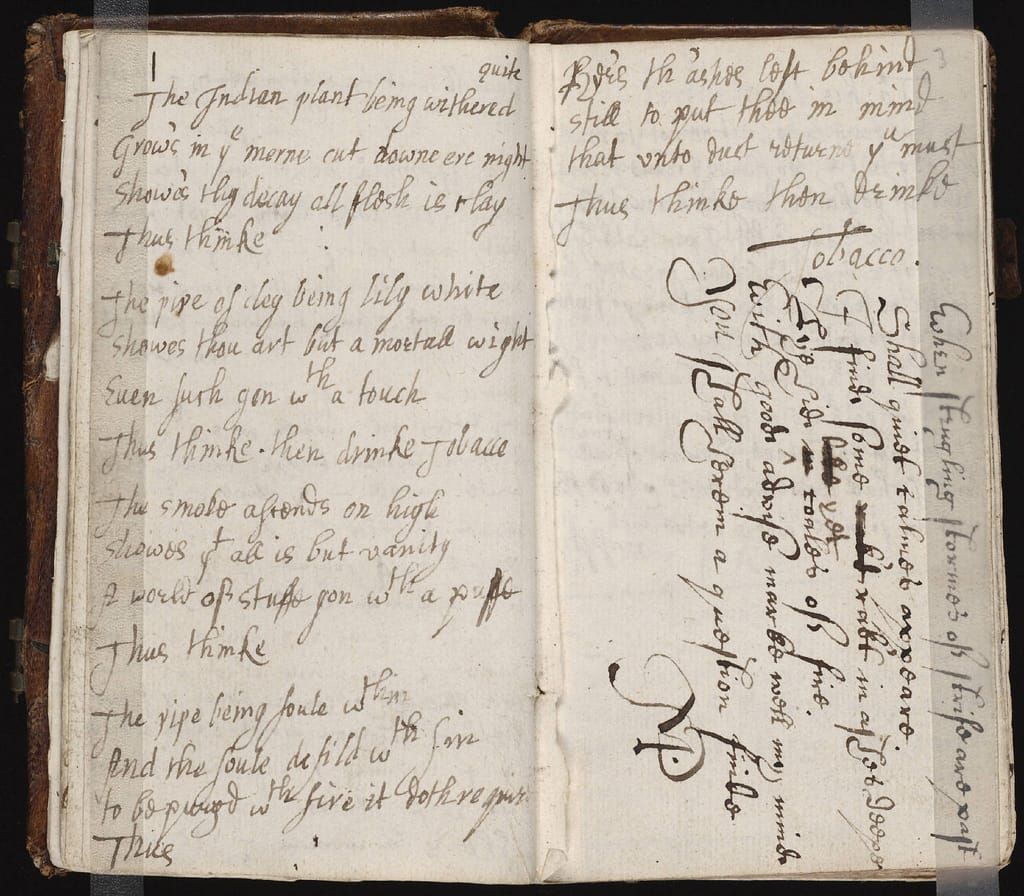 1
quite
The Indian plant being withered
Grow's in yᵉ morne cut downe ere night
Show's thy decay all flesh is clay
Thus thinke
The pipe of cley being lily white
Showes thou art but a mortall wight
Even such gon wᵗʰ a touch
Thus thinke then drinke Tobacco
The smoke ascends on high
Showes yᵗ all is but vanity
A world of stuffe gon wᵗʰ a puffe
Thus thinke
The pipe being foule wᵗʰin
And the soule defild wᵗʰ sin
to be purged wᵗʰ fire it doth require
Thus
th'ashes left behind
still to put thee in mind
that unto dust returne yᵘ must
Thus thinke then drinke
Tobacco.
When strugling stormes of strife are past
Shall quiet calmes appeare.
I finde some rakt in ashes deepe
coales of fire.
With good advise marke well my minde
You shall herein a question finde